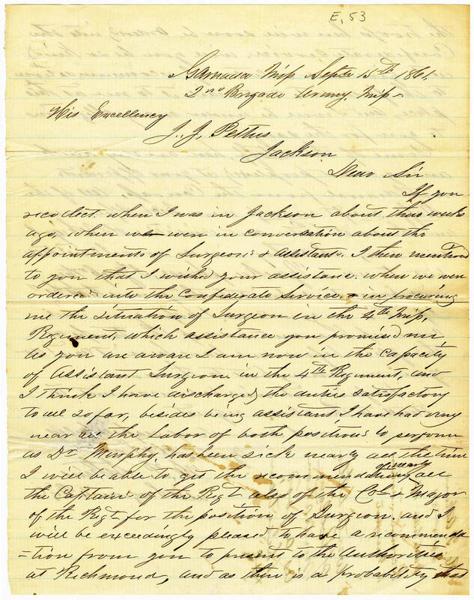 E, 53
Grenada Miss Septr 15th 1861.
2nd Brigade Army, Miss
His Excellency
J. J. Pettus
Jackson
Dear Sir
If you
recolect when I was in Jackson about three weeks
ago, when we were in conversation about the
appointments of Surgeons & assistants. I then mentioned
to you that I wished your assistance when we were
ordered into the Confederate Service, in procuring
me the situation of Surgeon in the 4th Miss,
Regiment, which assistance you promised me.
As you are aware I am now in the capacity
of Assistant Surgeon in the 4th Regiment, and
I think I have discharged the duties satisfactory
to all so far, besides being assistant, I have had very
near all the labor of both positions to perform
as Dr Murphy has been sick nearly all the time
I will be able to get the recommendation of nearly all
the Captains of the Regt also of the Col & Major
of the Regt for the position of Surgeon, and I
will be exceedingly pleased to have a recommenda
=tion from you to present to the Authorities
at Richmond, and as there is a probability that